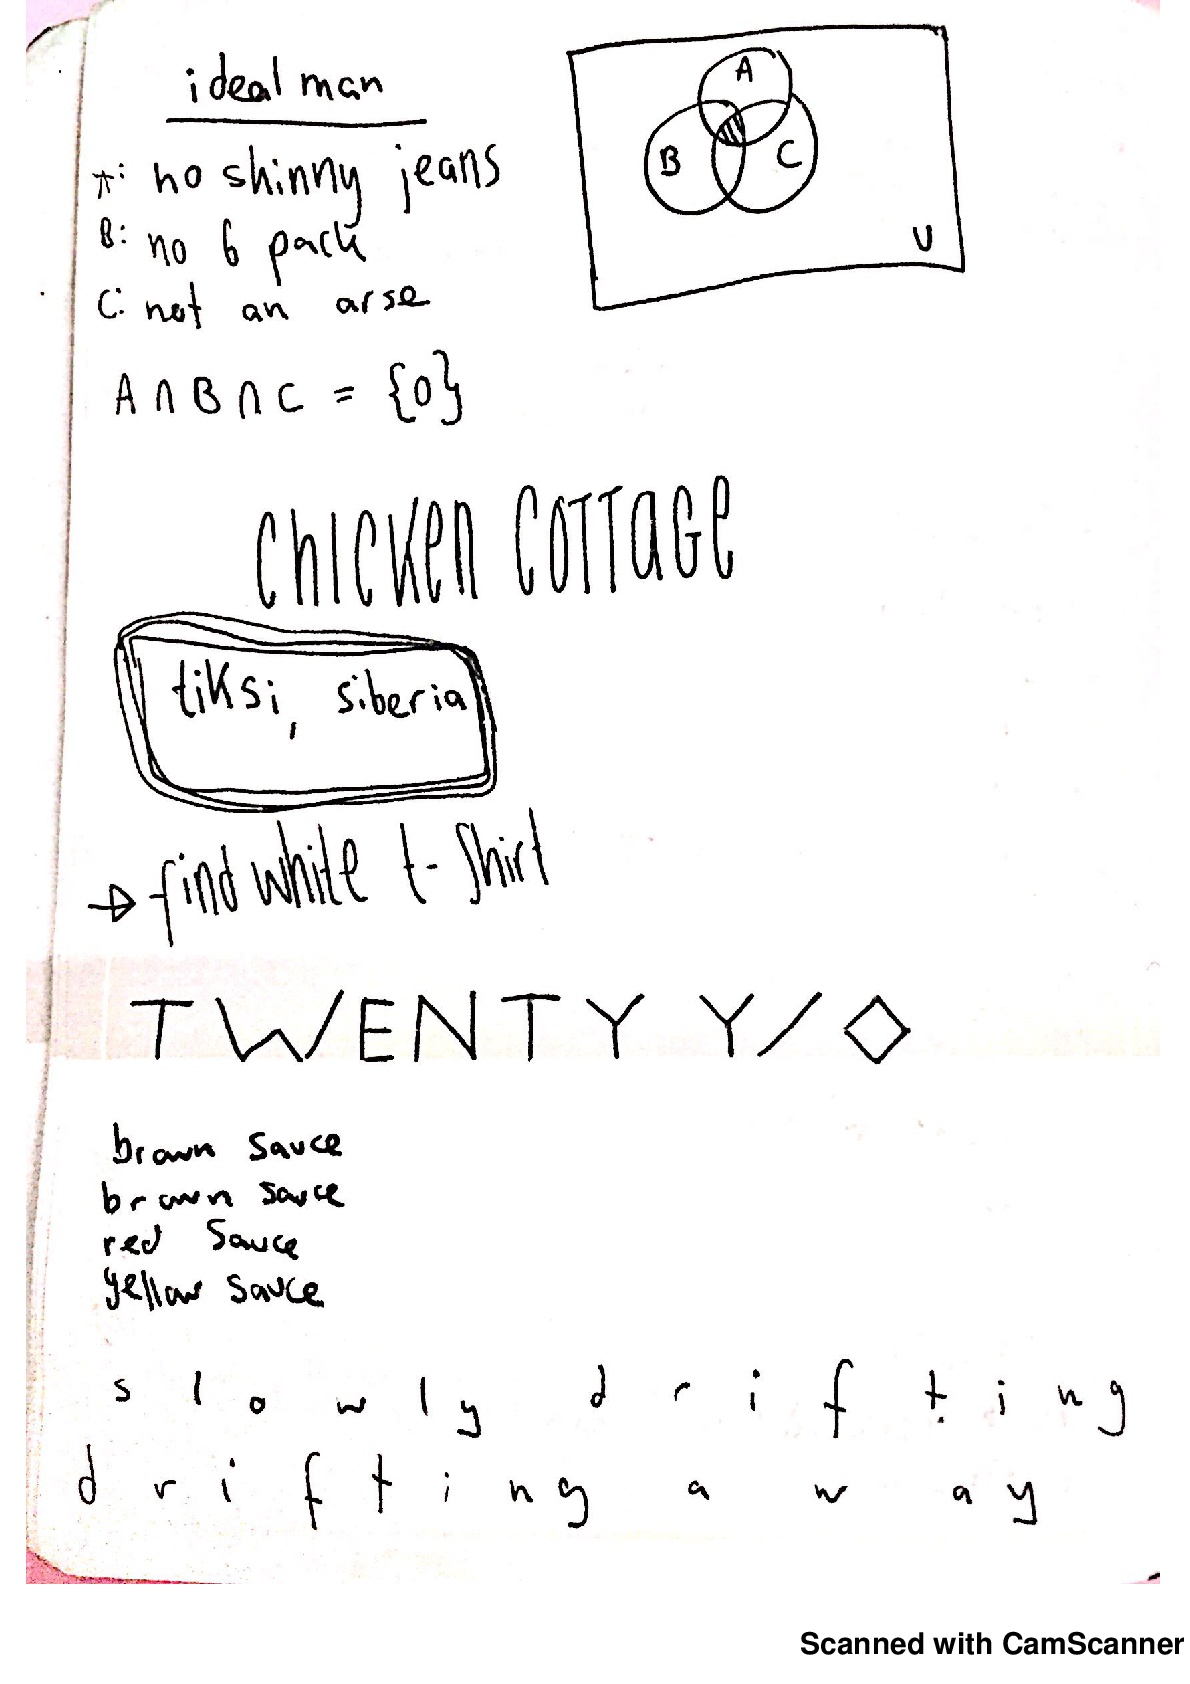 ideal man
A: no shinny jeans
B: no 6 pack
C: not an arse
A
B
C
U
A ∩ B ∩ C = {0}
chicken cottage
tiksi, siberia
→ find white t-shirt
TWENTY Y/O
brown sauce
brown sauce
red sauce
yellow sauce
slowly drifting
drifting away
Scanned with CamScanner